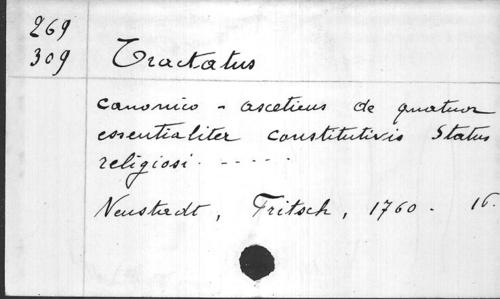 269
309 Tractatus
canonico - asceticus de quatuor
essentialiter constitutivis Status
religiosi. - - - - -
Neustadt, Fritsch, 1760. 16.